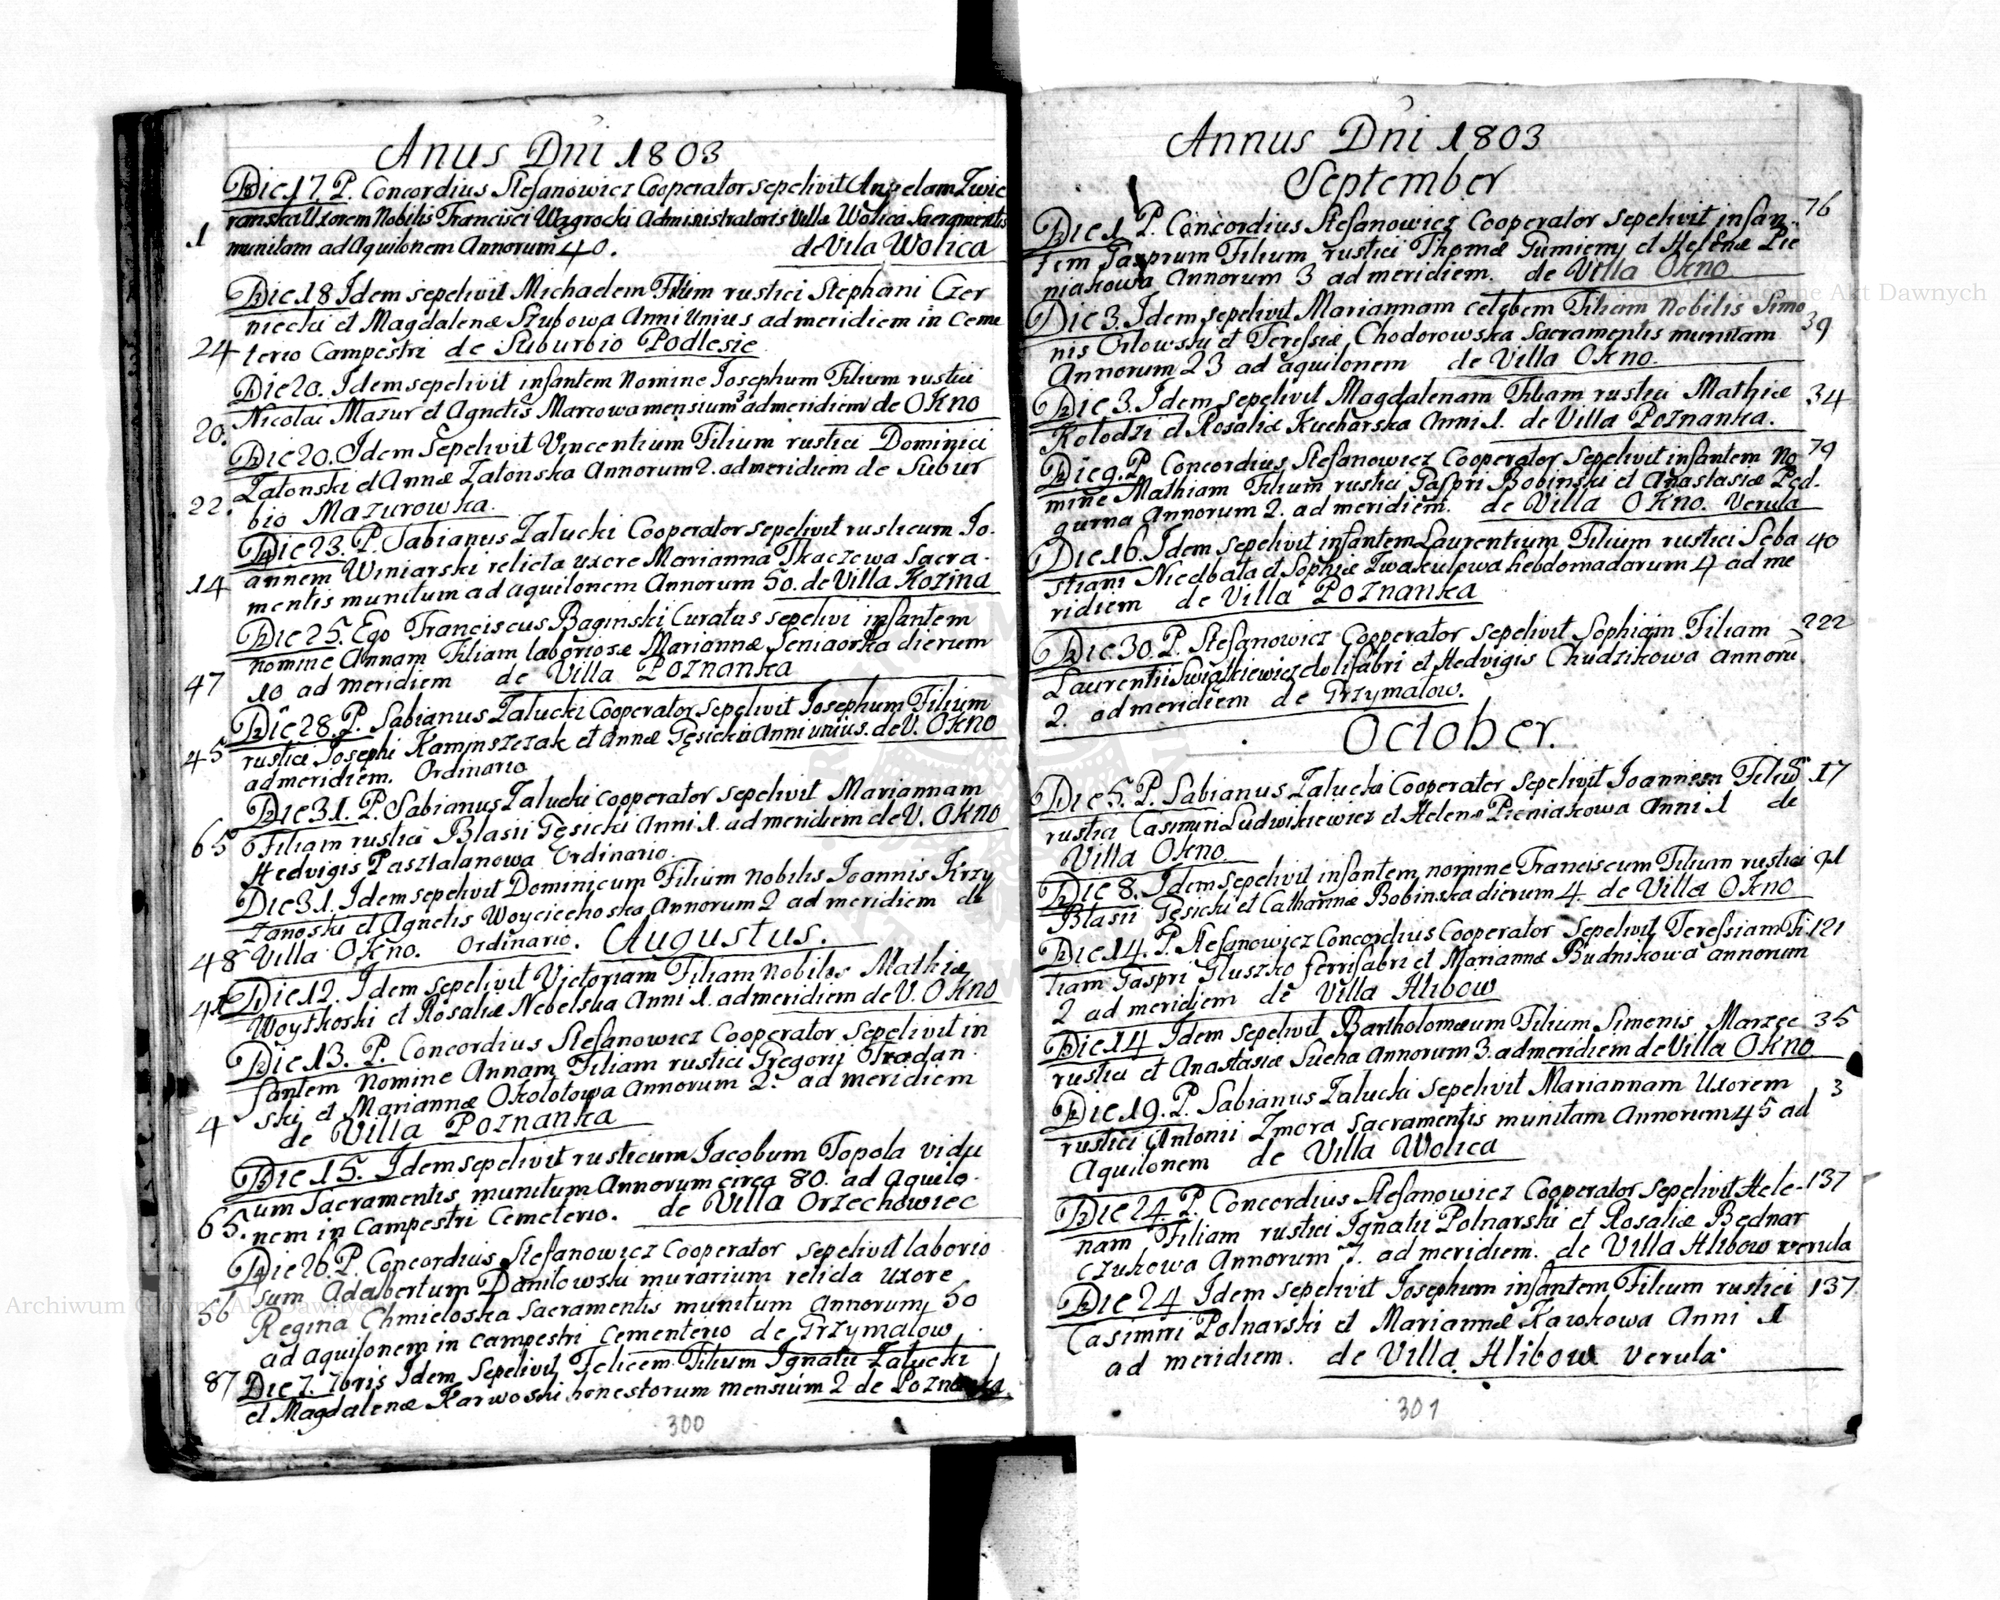 Anus Dni 1803
Die 17. P. Concordius Stefanowicz Cooperator sepelivit Angelam Zwie
ranska Uxorem Nobilis Francisci Wągrocki Administratoris Villæ Wolica Sacramentis
1 munitam ad Aquilonem Annorum 40. de Vila Wolica
Die 18 Idem sepelivit Michaelem Filium rustici Stephani Czer
niecki et Magdalenæ Szubowa Anni Unius ad meridiem in Ceme
24 terio Campestri de Suburbio Podlesie
Die 20. Idem sepelivit infantem Nomine Josephum Filium rustici
20. Nicolai Mazur et Agnetis Marcowa mensium 3 ad meridiem de Okno
Die 20. Idem Sepelivit Vincentium Filium rustici Dominici
Zatonski et Annæ Zatonska Annorum 2. ad meridiem de Subur
22. bio Mazurowka.
Die 23. P. Sabianus Zalucki Cooperator sepelivit rusticum Jo.
annem Winiarski relicta uxore Marianna Tkaczowa Sacra.
14 mentis munitum ad aquilonem Annorum 50. de Villa Kozina
Die 25. Ego Franciscus Baginski Curatus sepelivi infantem
nomine Annam Filiam laboriosæ Mariannæ dierum
47 10 ad meridiem de Villa Poznanka
Die 28. P. Sabianus Zalucki Cooperator Sepelivit Josephum Filium
45 rustici Josephi Kaminszczak et Annæ Gęsicka Anni unius. de V. Okno
ad meridiem. Ordinario
Die 31. P. Sabianus Zalucki cooperator sepelivit Mariannam
65 Filiam rustici Blasii Gęsicki Anni 1. ad meridiem de V. Okno
Hedvigis Pasztalanowa Ordinario.
Die 31. Idem sepelivit Dominicum Filium Nobilis Joannis Krzy
zanoski et Agnetis Woyciechoska Annorum 2 ad meridiem de
48 Villa Okno. Ordinario. Augustus.
41 Die 12. Idem sepelivit Victoriam Filiam Nobilis Mathiæ
Woytkoski et Rosaliæ Nebelska Anni 1. ad meridiem de V. Okno
Die 13. P. Concordius Stefanowicz Cooperator sepelivit in
fantem Nomine Annam Filiam rustici Gregorij
4 ski et Mariannæ Okolotowa Annorum 2. ad meridiem
de Villa Poznanka
Die 15. Idem sepelivit rusticum Jacobum Topola vidu
um Sacramentis munitum Annorum circa 80. ad Aquilo.
65. nem in Campestri Cemeterio. de Villa Orzechowiec
Die 26. P. Concordius Stefanowicz Cooperator sepelivit laborio
sum Adalbertum Danilowski murarium relicta uxore
56 Regina Chmieloska Sacramentis munitum Annorum 50
ad aquilonem in campestri Cementerio de Grzymalow
87 Die 7. 7bris Idem Sepelivit Felicem Filium Ignatii Zalucki
et Magdalenæ Karwoski honestorum mensium 2 de Poznanka
300
Annus Dni 1803
September
Die 1 P. Concordius Stefanowicz Cooperator sepelivit infan- 76
tem Gasprum Filium rustici Thomæ Gumieny et Helenæ Pie
niakowa Annorum 3 ad meridiem. de Villa Okno
Die 3. Idem sepelivit Mariannam celebem Filiam Nobilis Simo
nis Orlowski et Teressiæ Chodorowska Sacramentis munitam 39
Annorum 23 ad aquilonem de Villa Okno.
Die 3. Idem sepelivit Magdalenam Filiam rustici Mathiæ 34
Kolodzi et Rosaliæ Kucharska Anni 1. de Villa Poznanka.
Die 9. P. Concordius Stefanowicz Cooperator Sepelivit infantem No 79
mine Mathiam Filium rustici Gaspri Bobinski et Anastasiæ Pod.
gurna Annorum 2. ad meridiem. de Villa Okno. Verula
Die 16. Idem sepelivit infantem Laurentium Filium rustici Seba 40
stiani Niedbala et Sophiæ hebdomadarum 4 ad me
ridiem de Villa Poznanka
Die 30. P. Stefanowicz Cooperator sepelivit Sophiam Filiam 222
Laurentii Swiątkiewicz dolifabri et Hedvigis Chudzikowa annoru
2. ad meridiem de Grzymalow.
October.
Die 5. P. Sabianus Zalucki Cooperator sepelivit Joannem Filiu 17
rustici Casimiri Ludwikiewicz et Helenæ Pieniakowa Anni 1 de
Villa Okno
Die 8. Idem sepelivit infantem nomine Franciscum Filium rustici 91
Blasii Gęsicki et Catharinæ Bobinska dierum 4. de Villa Okno
Die 14. P. Stefanowicz Concordius Cooperator Sepelivit Teressiam Fi 121
liam Gaspri Gluszko ferrifabri et Mariannæ Budnikowa annorum
2 ad meridiem de Villa Hlibow
Die 14 Idem sepelivit Bartholomæum Filium Simonis Marzec 35
rustici et Anastasiæ Sucha Annorum 3. ad meridiem de Villa Okno
Die 19. P. Sabianus Zalucki sepelivit Mariannam Uxorem 3
rustici Antonii Zmora sacramentis munitam Annorum 45 ad
Aquilonem de Villa Wolica
Die 24 P. Concordius Stefanowicz Cooperator sepelivit Hele- 137
nam Filiam rustici Ignatii Polnarski et Rosaliæ Bednar
czukowa Annorum 7. ad meridiem. de Villa Hlibow verula
Die 24 Idem sepelivit Josephum infantem Filium rustici 137
Casimiri Polnarski et Mariannæ Kawkowa Anni 1
ad meridiem. de Villa Hlibow verula.
301
Archiwum Główne Akt Dawnych
Archiwum Główne Akt Dawnych